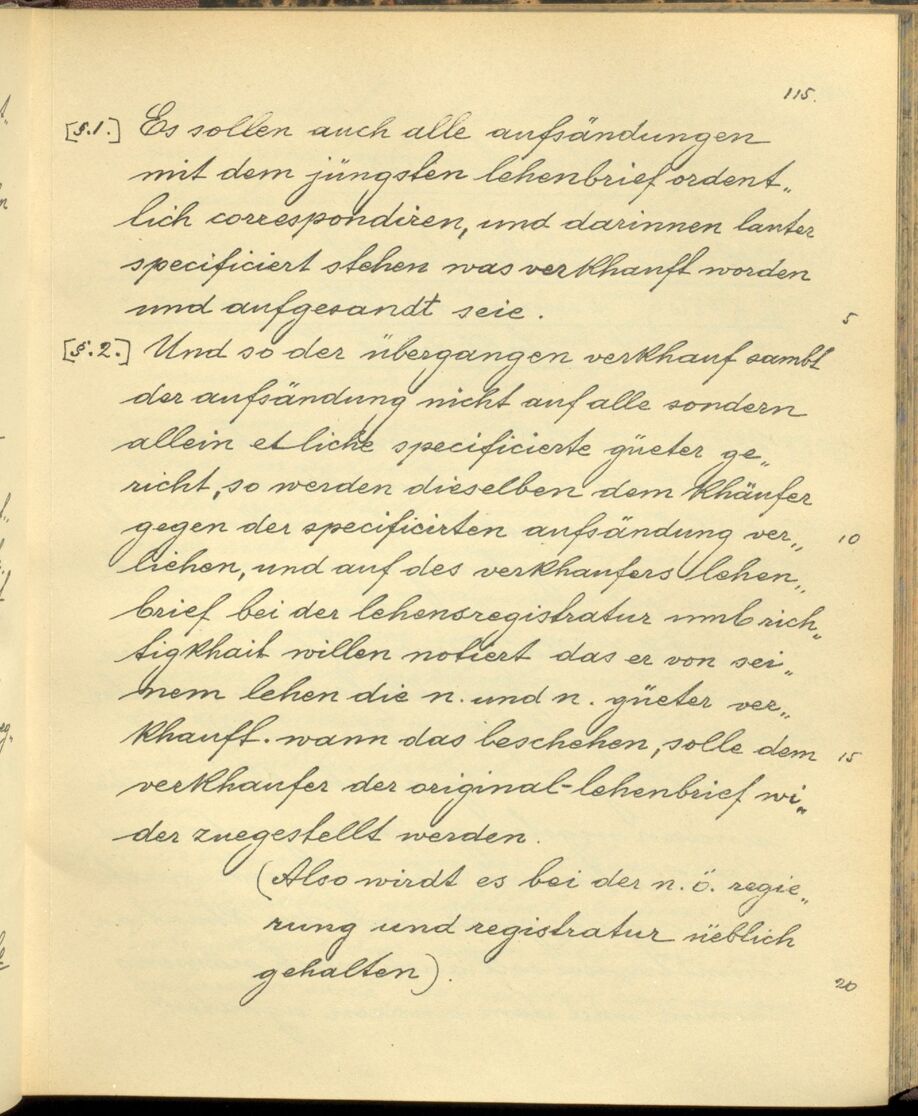 115.
[§.1.] Es sollen auch alle aufsändungen
mit dem jüngsten lehenbrief ordent„
lich correspondiren, und darinnen lauter
specificiert stehen was verkhauft worden
und aufgesandt seie. 5
[§.2.] Und so der übergangen verkhauf sambt
der aufsändung nicht auf alle sondern
allein etliche specificierte güeter ge„
richt, so werden dieselben dem khäufer
gegen der specificirten aufsändung ver„ 10
liehen, und auf des verkhaufers lehen„
brief bei der lehensregistratur umb rich„
tigkhait willen notiert das er von sei„
nem lehen die n. und n. güeter ver„
khauft. wann das beschehen, solle dem 15
verkhaufer der original-lehenbrief wi„
der zuegestellt werden.
(Also wirdt es bei der n.ö. regie„
rung und registratur üeblich
gehalten). 20